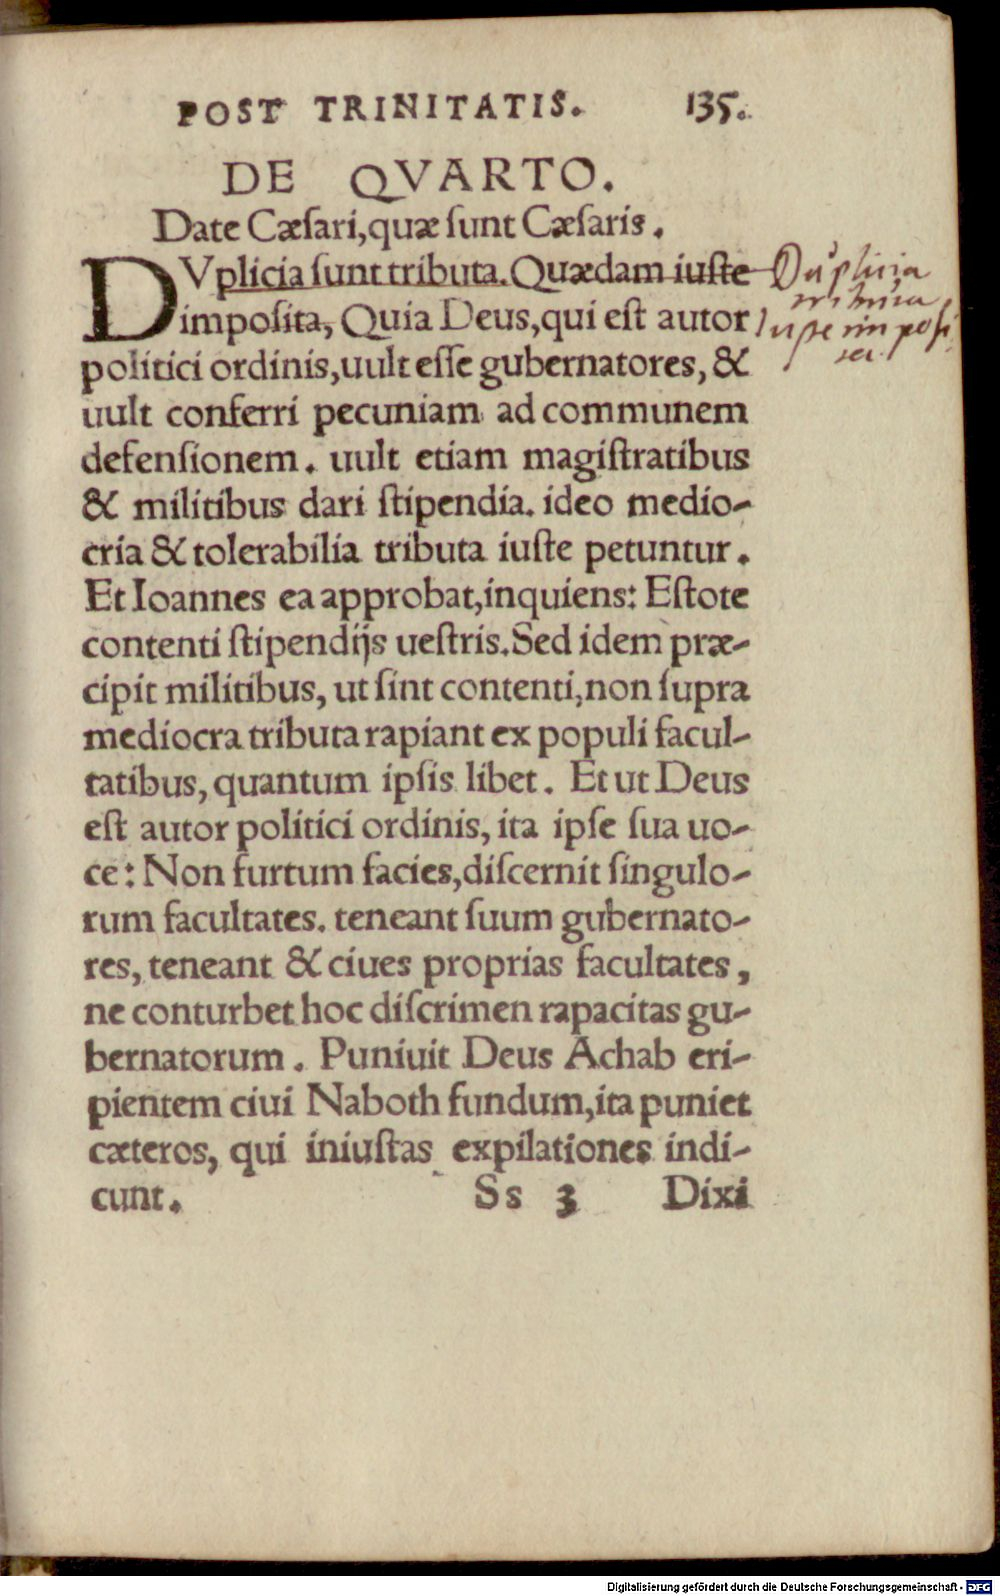 POST TRINITATIS. 135.
DE QVARTO.
Date Cæsari, quæ sunt Cæsaris.
DVplicia sunt tributa. Quædam iuste
imposita, Quia Deus, qui est autor
politici ordinis, uult esse gubernatores, &
uult conferri pecuniam ad communem
defensionem. uult etiam magistratibus
& militibus dari stipendia. ideo medio-
cria & tolerabilia tributa iuste petuntur.
Et Ioannes ea approbat, inquiens: Estote
contenti stipendijs uestris. Sed idem præ-
cipit militibus, ut sint contenti, non supra
mediocra tributa rapiant ex populi facul-
tatibus, quantum ipsis libet. Et ut Deus
est autor politici ordinis, ita ipse sua uo-
ce: Non furtum facies, discernit singulo-
rum facultates. teneant suum gubernato-
res, teneant & ciues proprias facultates,
ne conturbet hoc discrimen rapacitas gu-
bernatorum. Puniuit Deus Achab eri-
pientem ciui Naboth fundum, ita puniet
cæteros, qui iniustas expilationes indi-
cunt. Ss 3 Dixi
Duplicia
tributa
iuste imposi
ta.
Digitalisierung gefördert durch die Deutsche Forschungsgemeinschaft - DFG